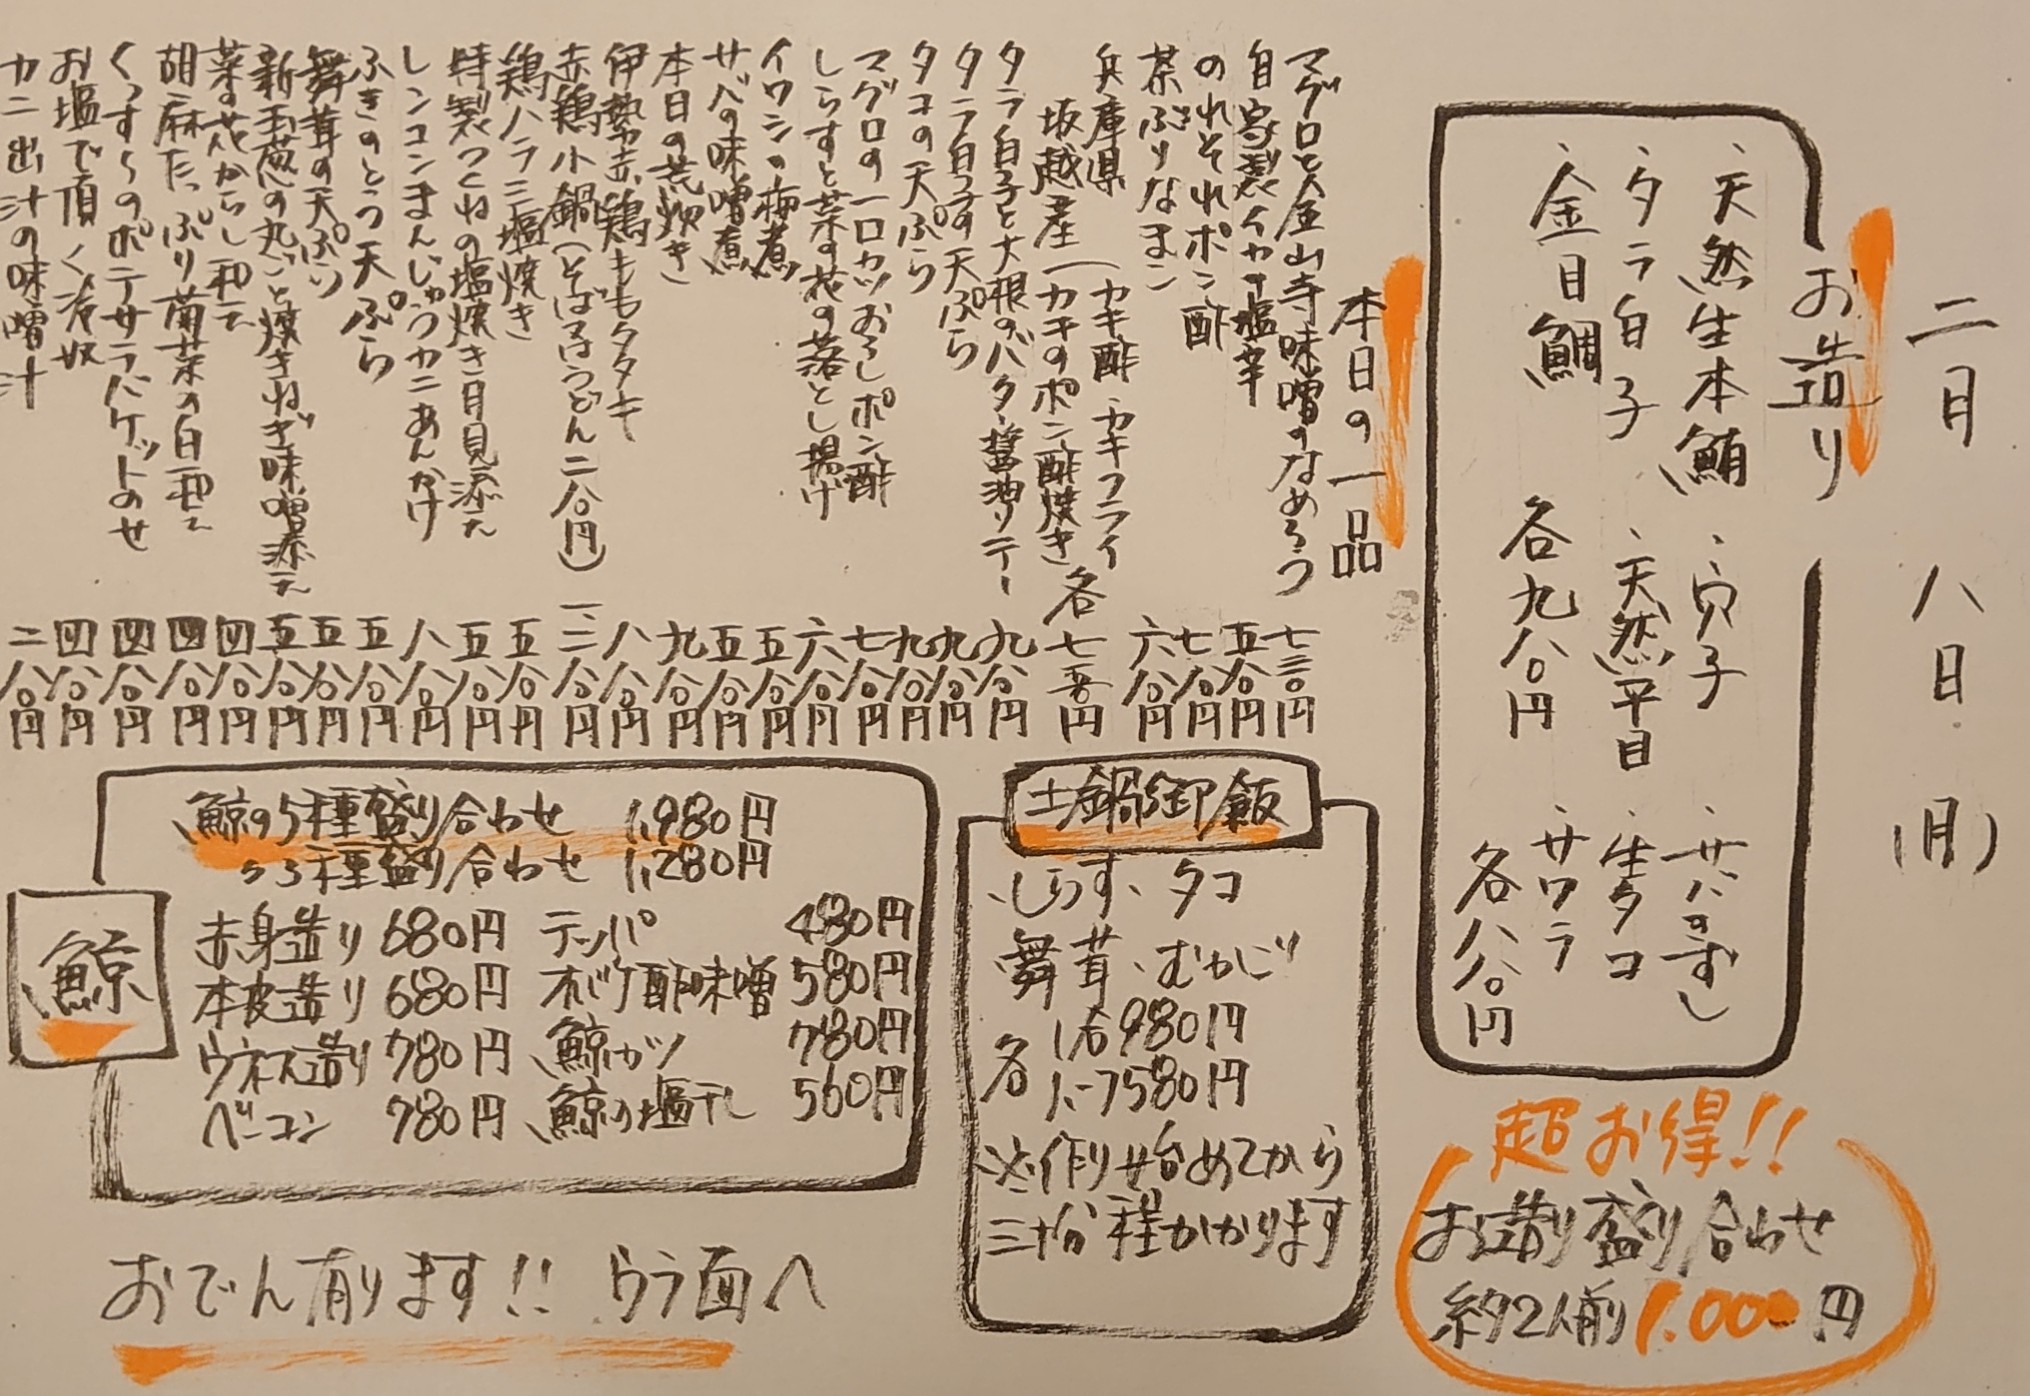 二月 八日 (月)
お造り
・天然生本鮪 ・穴子 ・サバきずし
・タラ白子 ・天然平目 ・生タコ
・金目鯛 各九八〇円 ・サワラ 各八八〇円
超お得!!
お造り盛り合わせ
約2人前 1.000円
本日の一品
マグロと金山寺味噌のなめろう 七三〇円
自家製イカの塩辛 五八〇円
のれそれポン酢 七八〇円
茶ぶりなまこ 六八〇円
兵庫県坂越産(カキ酢・カキフライ
カキのポン酢焼き 各七五〇円
タラ白子と大根のバター醤油ソテー 九八〇円
タラ白子天ぷら 九八〇円
タコの天ぷら 九八〇円
マグロの一口カツおろしポン酢 七八〇円
しらすと菜の花の落とし揚げ 六八〇円
イワシの梅煮 五八〇円
サバの味噌煮 五八〇円
本日の荒炊き 九八〇円
伊勢赤鶏ももタタキ 八八〇円
赤鶏小鍋(そば又はうどん二八〇円) 一、二八〇円
鶏ハラミ塩焼き 五八〇円
特製つくねの塩焼き月見添え 五八〇円
レンコンまんじゅうカニあんかけ 八八〇円
ふきのとう天ぷら 五八〇円
舞茸の天ぷら 五八〇円
新玉葱の丸ごと焼きねぎ味噌添え 五八〇円
菜の花からし和え 四八〇円
胡麻たっぷり菊菜の白和え 四八〇円
くっすらのポテサラバケットのせ 四八〇円
お塩で頂く冷奴 四八〇円
カニ出汁の味噌汁 二八〇円
土鍋御飯
・しらす・タコ
舞茸・むかご
各 1合 980円
1.5 1580円
※作り始めてから
三十分程かかります
鯨
鯨の5種盛り合わせ 1,980円
〃3種盛り合わせ 1,280円
赤身造り 680円 テッパ 480円
本皮造り 680円 オバケ酢味噌 580円
ウネス造り 780円 鯨カツ 780円
ベーコン 780円 鯨の塩干し 560円
おでん有ります!! ウラ面へ